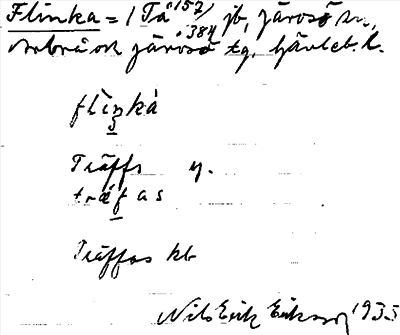 Flinka = (Tå 157, jb, Järvsö sn,
Arbrå och Järvsö tg. Gävleb. l.
flinka
Träffs y.
träfas
Träffas kb
Nils Erik Eriksson 1935